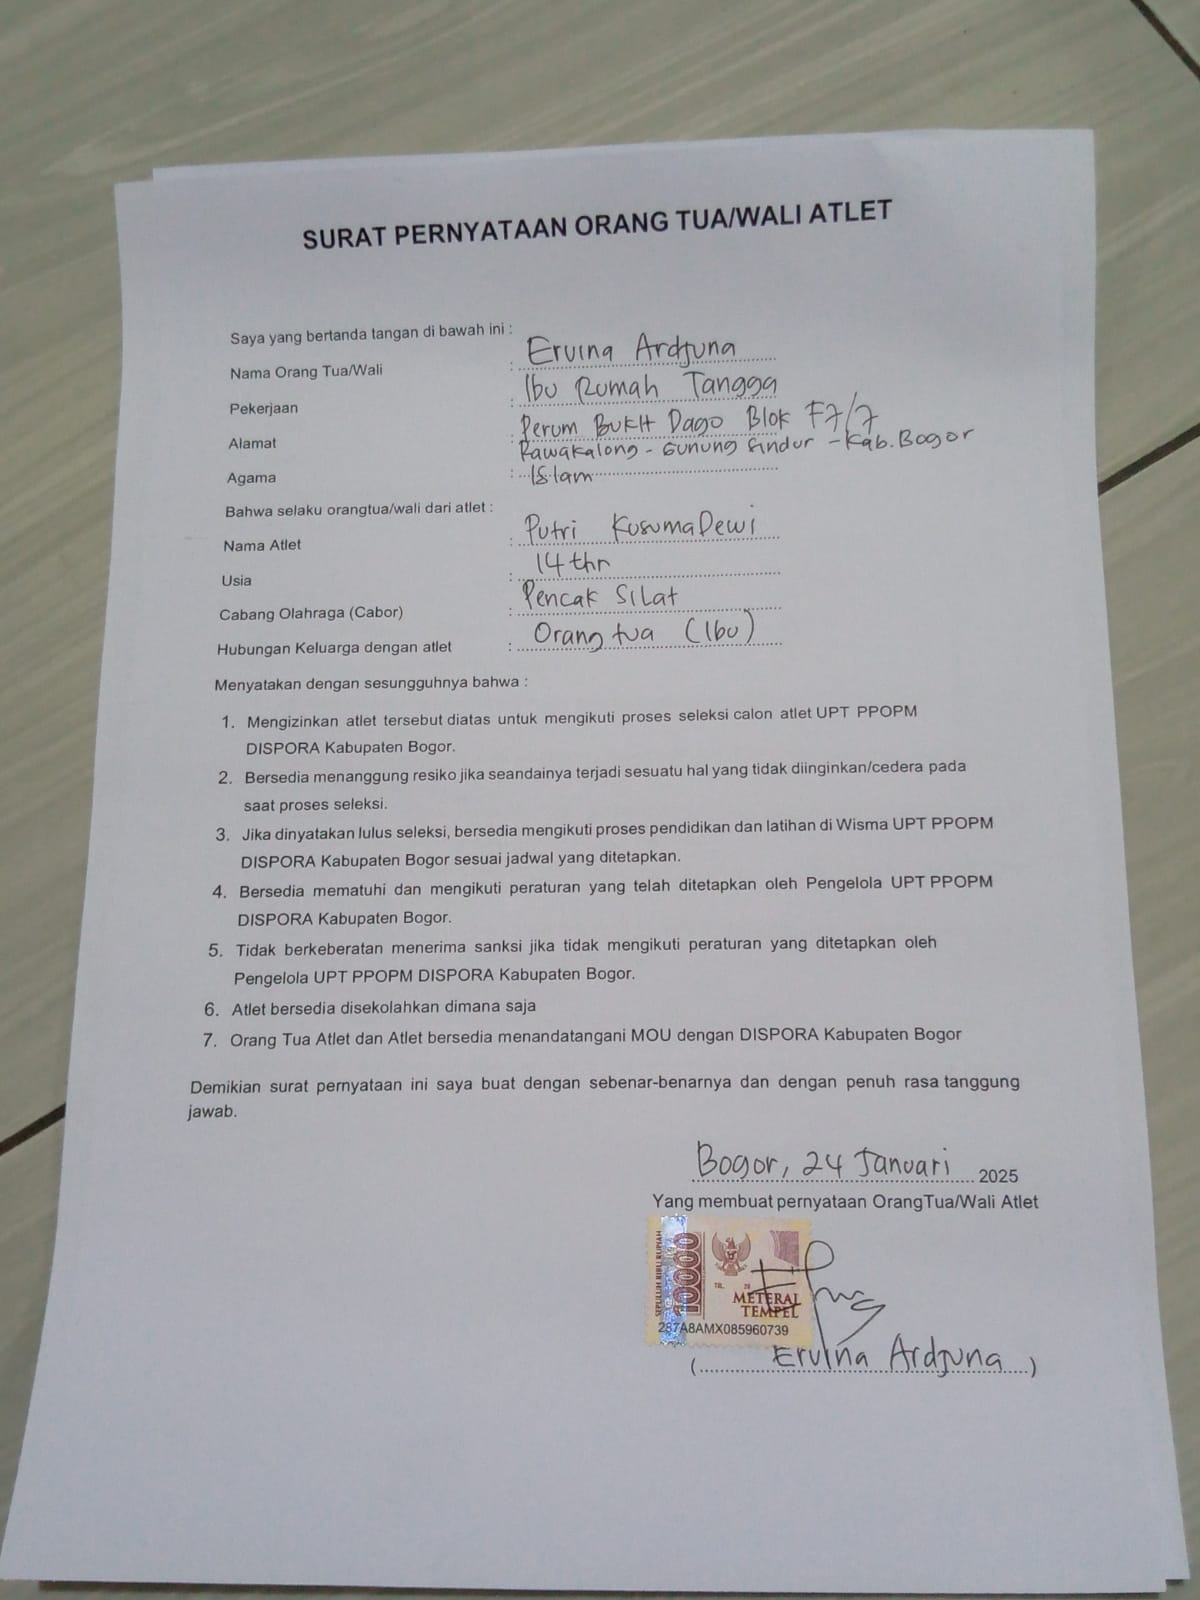 SURAT PERNYATAAN ORANG TUA/WALI ATLET
Saya yang bertanda tangan di bawah ini :
Nama Orang Tua/Wali : Ervina Ardjuna
Pekerjaan : Ibu Rumah Tangga
Alamat : Perum Bukit Dago Blok F7/7
Rawakalong - Gunung Sindur - Kab. Bogor
Agama : Islam
Bahwa selaku orangtua/wali dari atlet :
Nama Atlet : Putri Kusuma Dewi
Usia : 14 thn
Cabang Olahraga (Cabor) : Pencak Silat
Hubungan Keluarga dengan atlet : Orang tua (Ibu)
Menyatakan dengan sesungguhnya bahwa :
1. Mengizinkan atlet tersebut diatas untuk mengikuti proses seleksi calon atlet UPT PPOPM
DISPORA Kabupaten Bogor.
2. Bersedia menanggung resiko jika seandainya terjadi sesuatu hal yang tidak diinginkan/cedera pada
saat proses seleksi.
3. Jika dinyatakan lulus seleksi, bersedia mengikuti proses pendidikan dan latihan di Wisma UPT PPOPM
DISPORA Kabupaten Bogor sesuai jadwal yang ditetapkan.
4. Bersedia mematuhi dan mengikuti peraturan yang telah ditetapkan oleh Pengelola UPT PPOPM
DISPORA Kabupaten Bogor.
5. Tidak berkeberatan menerima sanksi jika tidak mengikuti peraturan yang ditetapkan oleh
Pengelola UPT PPOPM DISPORA Kabupaten Bogor.
6. Atlet bersedia disekolahkan dimana saja
7. Orang Tua Atlet dan Atlet bersedia menandatangani MOU dengan DISPORA Kabupaten Bogor
Demikian surat pernyataan ini saya buat dengan sebenar-benarnya dan dengan penuh rasa tanggung
jawab.
Bogor, 24 Januari 2025
Yang membuat pernyataan OrangTua/Wali Atlet
SEPULUH RIBU RUPIAH
10000
TGL. 20
METERAI
TEMPEL
287A8AMX085960739
(Ervina Ardjuna)